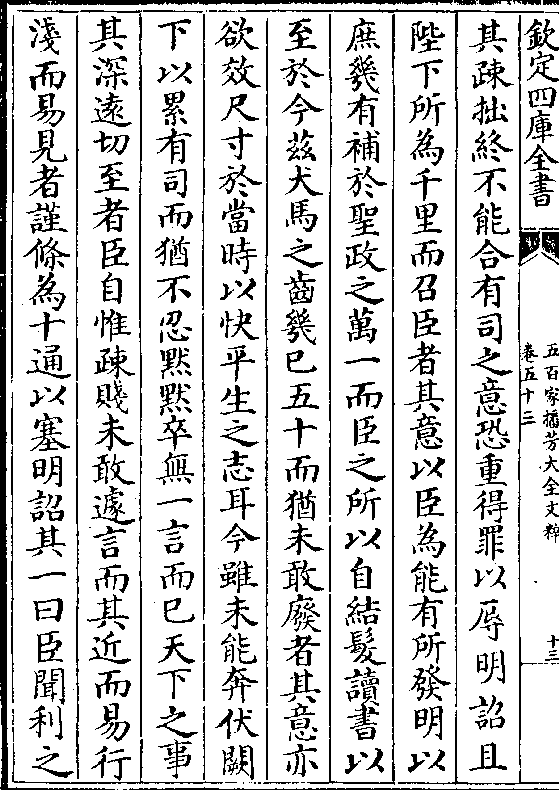 欽定四庫全書
五百家播芳大全文粹
卷五十二
十三
其疎拙終不能合有司之意恐重得罪以辱明詔且
陛下所為千里而召臣者其意以臣為能有所發明以
庶幾有補於聖政之萬一而臣之所以自結髮讀書以
至於今茲犬馬之齒幾已五十而猶未敢廢者其意亦
欲效尺寸於當時以快平生之志耳今雖未能奔伏闕
下以累有司而猶不忍黙黙卒無一言而已天下之事
其深遠切至者臣自惟疎賤未敢遽言而其近而易行
淺而易見者謹條為十通以塞明詔其一曰臣聞利之